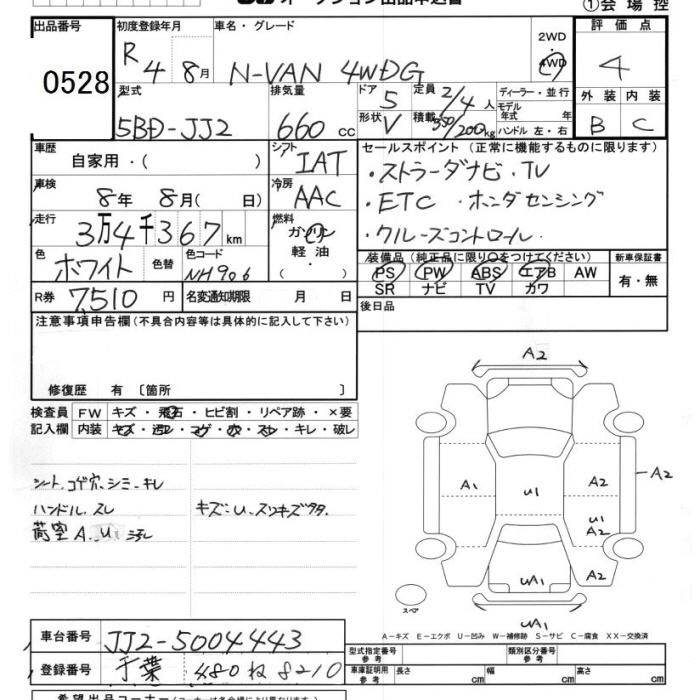 オークション出品申込書 ①会場控
出品番号 0528
初度登録年月 R4 8月
車名・グレード N-VAN 4WDG
2WD・4WD
評価点 4
型式 5BD-JJ2
排気量 660 cc
ドア 5
定員 2/4人
形状 V
積載 350/200kg
ディーラー・並行
モデル年式 年式
ハンドル 左・右
外装 内装
B C
車歴 自家用・( )
シフト IAT
セールスポイント(正常に機能するものに限ります)
・ストラーダナビ・TV
車検 8年 8月( 日)
冷房 AAC
・ETC ・ホンダセンシング
走行 3万4千367km
燃料 ガソリン 軽油・
・クルーズコントロール
色 ホワイト 色替
色コード NH906
装備品(純正品に限り○をつけてください)
PS PW ABS エアB AW
SR ナビ TV カワ
新車保証書 有・無
R券 7,510円
名変通知期限 月 日
後日品
注意事項申告欄(不具合内容等は具体的に記入して下さい)
修復歴 有〔箇所 〕
検査員記入欄
FW キズ・飛石・ヒビ割・リペア跡・×要
内装 キズ・汚レ・コゲ・穴・スレ・キレ・破レ
シート、コゲ穴、シミ、キレ
ハンドル、スレ
荷室 A、U、汚レ
キズ・U、スリキズ多々
A2
A1 U1 A2 A2
U1 A2
A2
UA1
UA1
スペア
A-キズ E-エクボ U-凹み W-補修跡 S-サビ C-腐食 XX-交換済
車台番号 JJ2-5004443
型式指定番号 参考
類別区分番号 参考
登録番号 千葉 480 ね 8210
車庫証明用 参考 長さ cm 幅 cm 高さ cm
希望出品コーナー